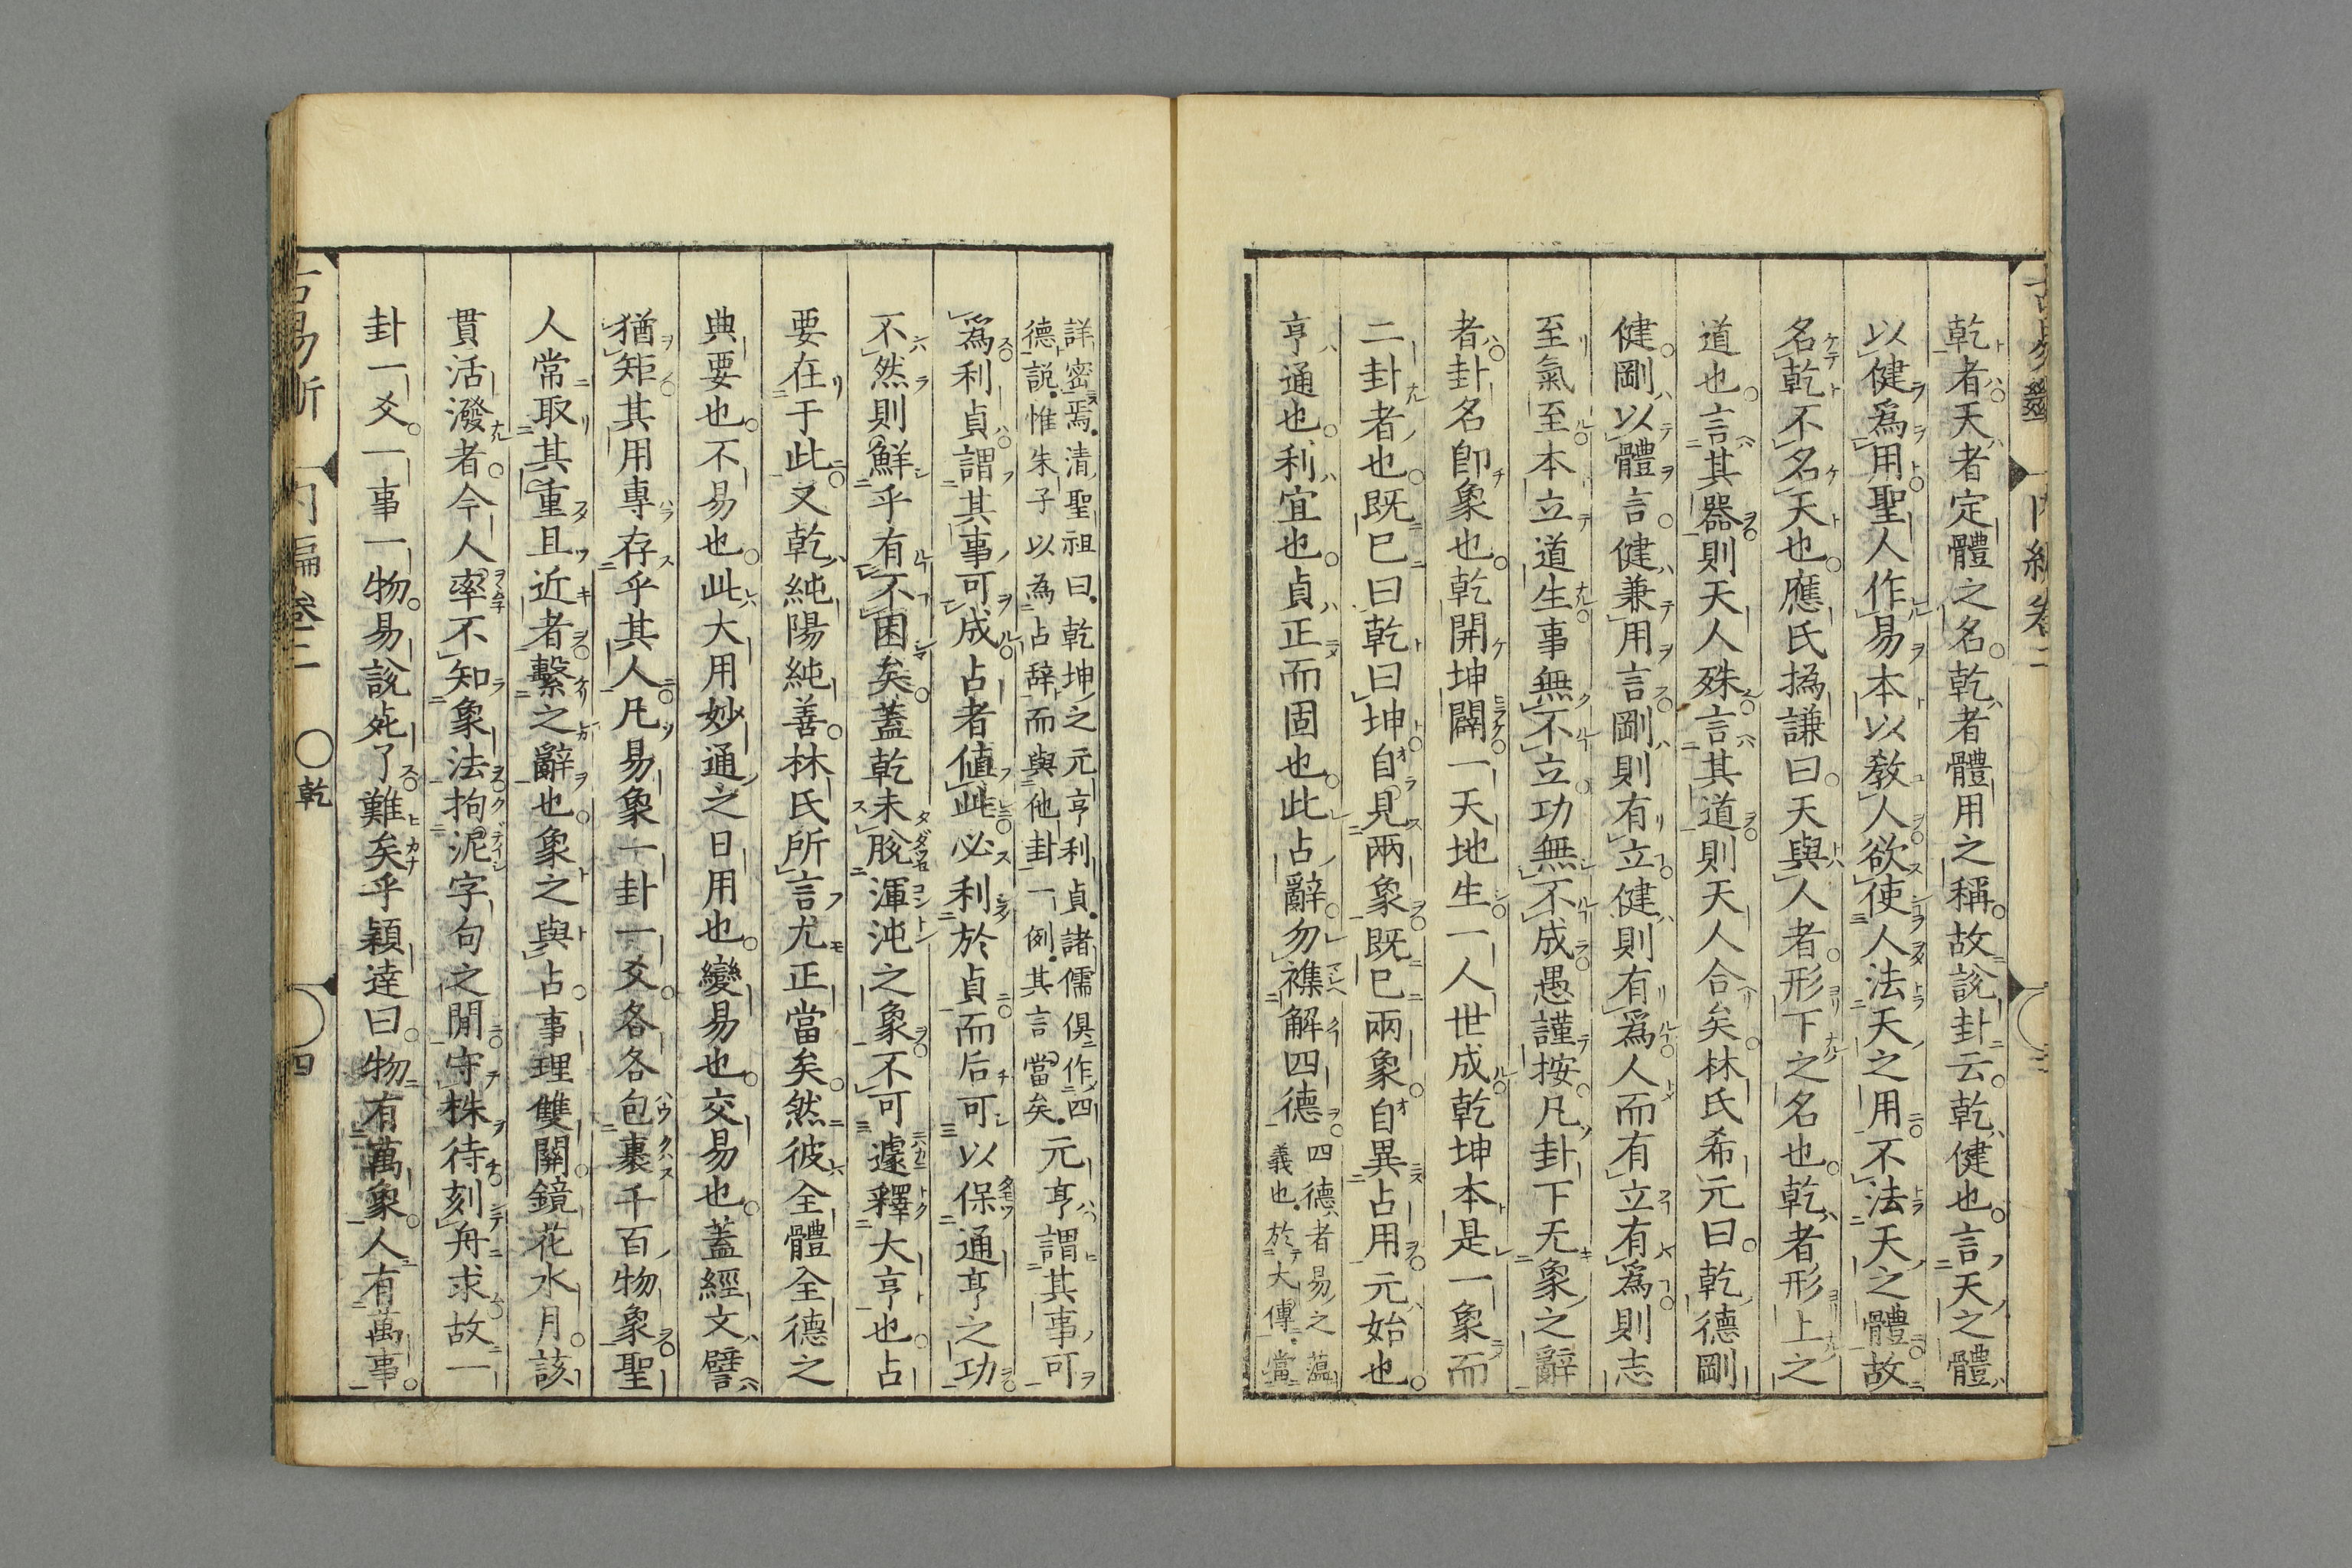 乾者天者定體之名乾者體用之稱故說卦云乾健也言天之體
以健爲用聖人作易本以教人欲使人法天之用不法天之體故
名乾不名天也應氏撝謙曰天與人者形下之名也乾者形上之
道也言其器則天人殊言其道則天人合矣林氏希元曰乾德剛
健剛以體言健兼用言剛則有立健則有爲人而有立有爲則志
至氣至本立道生事無不立功無不成愚謹按凡卦下无象之辭
者卦名卽象也乾開坤闢一天地生一人世成乾坤本是一象而
二卦者也既已曰乾曰坤自見兩象既已兩象自異占用元始也
亨通也利宜也貞正而固也此占辭勿襍解四德
四德者易之蕰
義也於大傳當
詳密焉清聖祖曰乾坤之元亨利貞諸儒俱作四
德說惟朱子以為占辞而與他卦一例其言當矣
元亨謂其事可
爲利貞謂其事可成占者値此必利於貞而后可以保通亨之功
不然則鮮乎有不困矣蓋乾未脫渾沌之象不可遽釋大亨也占
要在于此又乾純陽純善林氏所言尤正當矣然彼全體全德之
典要也不易也此大用妙通之日用也變易也交易也蓋經文譬
猶矩其用專存乎其人凡易象一卦一爻各各包裹千百物象聖
人常取其重且近者繫之辭也象之與占事理雙關鏡花水月該
貫活潑者今人率不知象法拘泥字句之閒守株待刻舟求故一
卦一爻一事一物易說死了難矣乎穎逹曰物有萬象人有萬事
內編卷二
乾
四